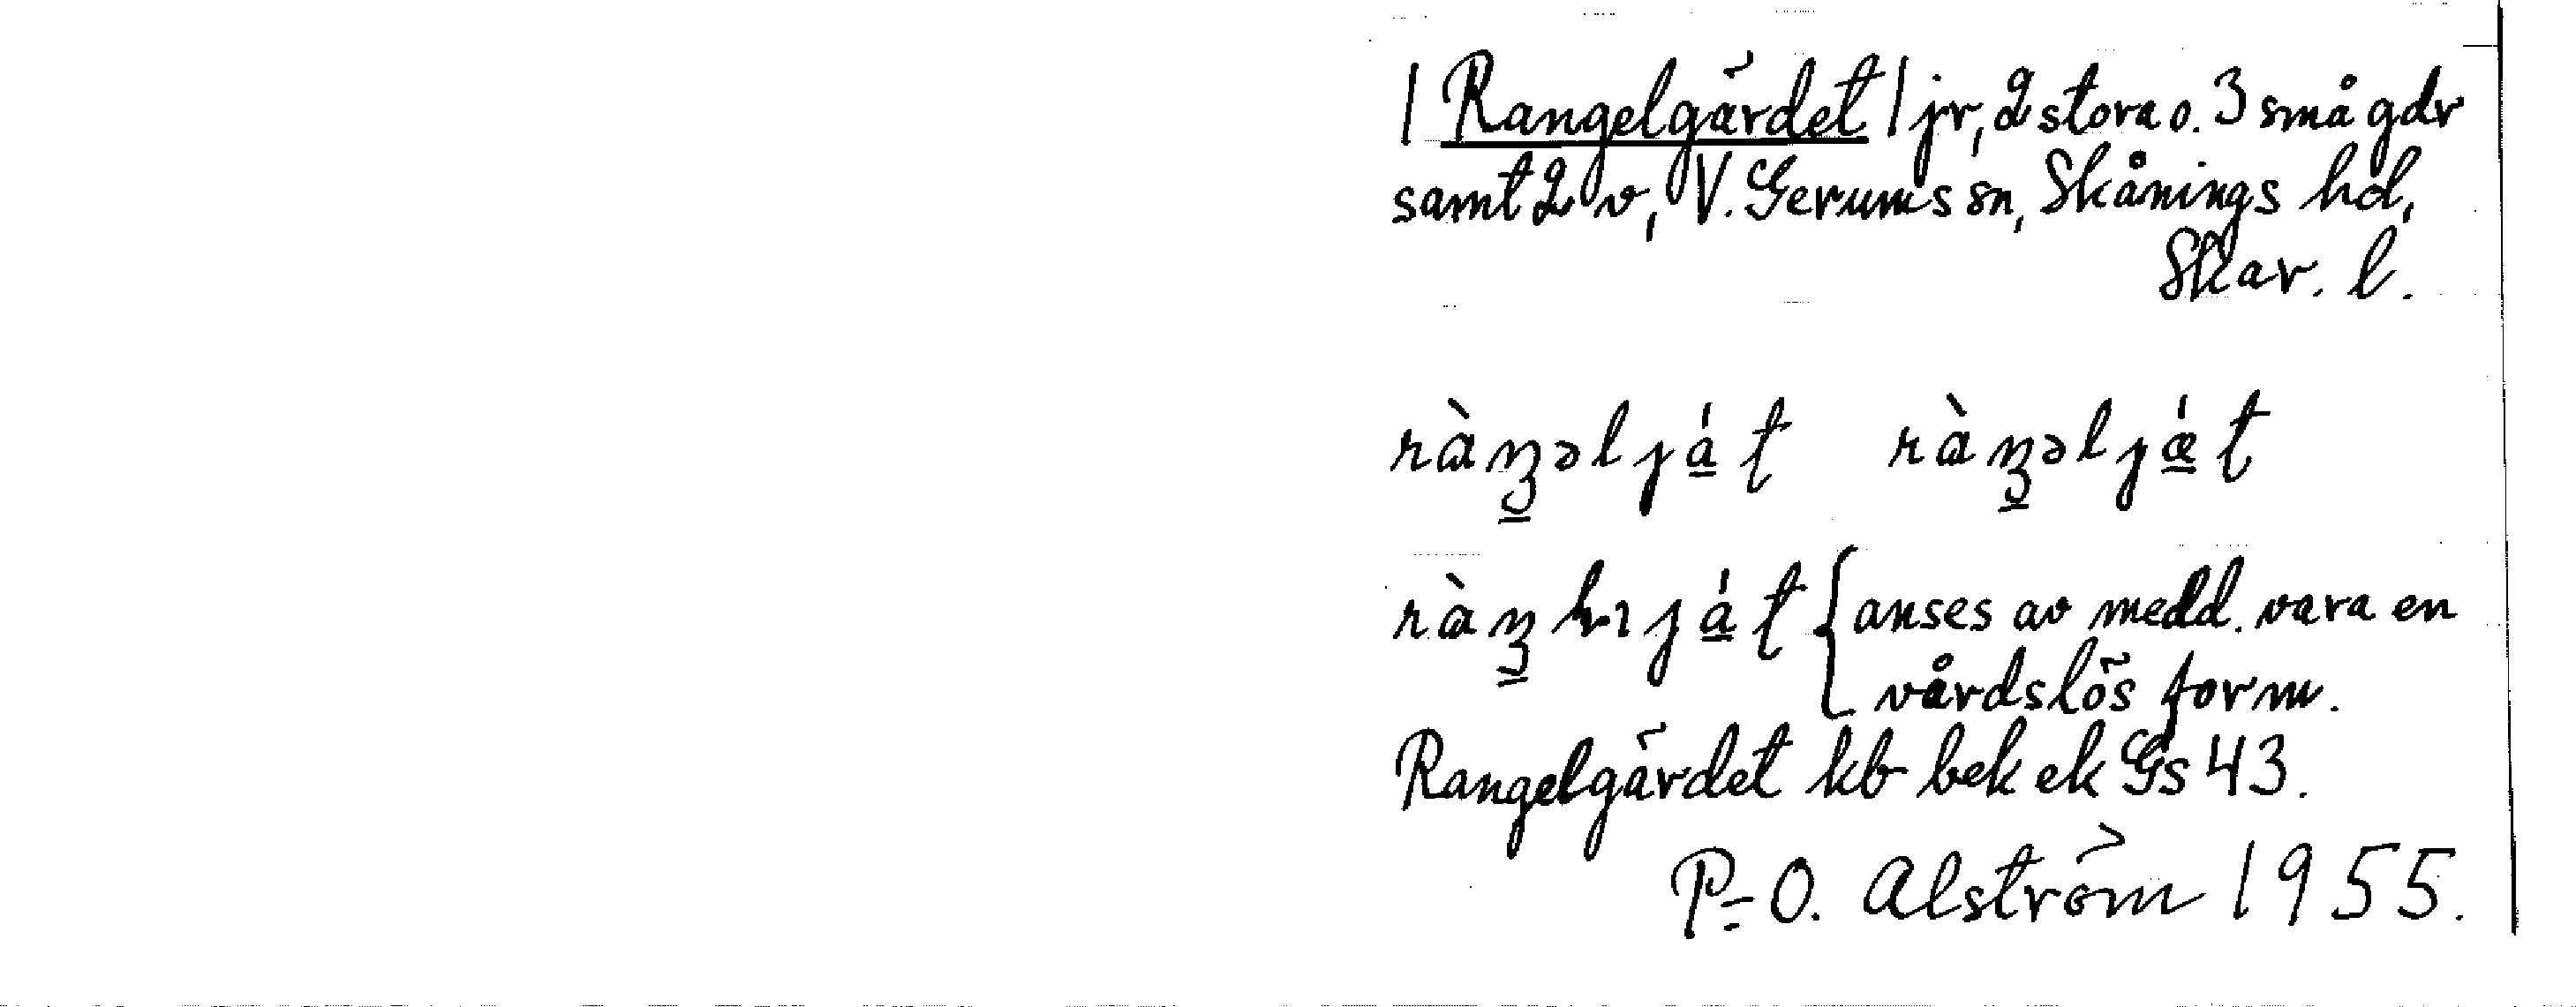 | Rangelgärdet | jr, 2 stora o. 3 små gdr
samt 2 v, V. Gerums sn, Skånings hd,
Skar. l.
ràŋəlját ràŋəljǽt
anses av medd. vara en
vårdslös form.
Rangelgärdet kb bek ek Gs 43.
P-O. Alström 1955.